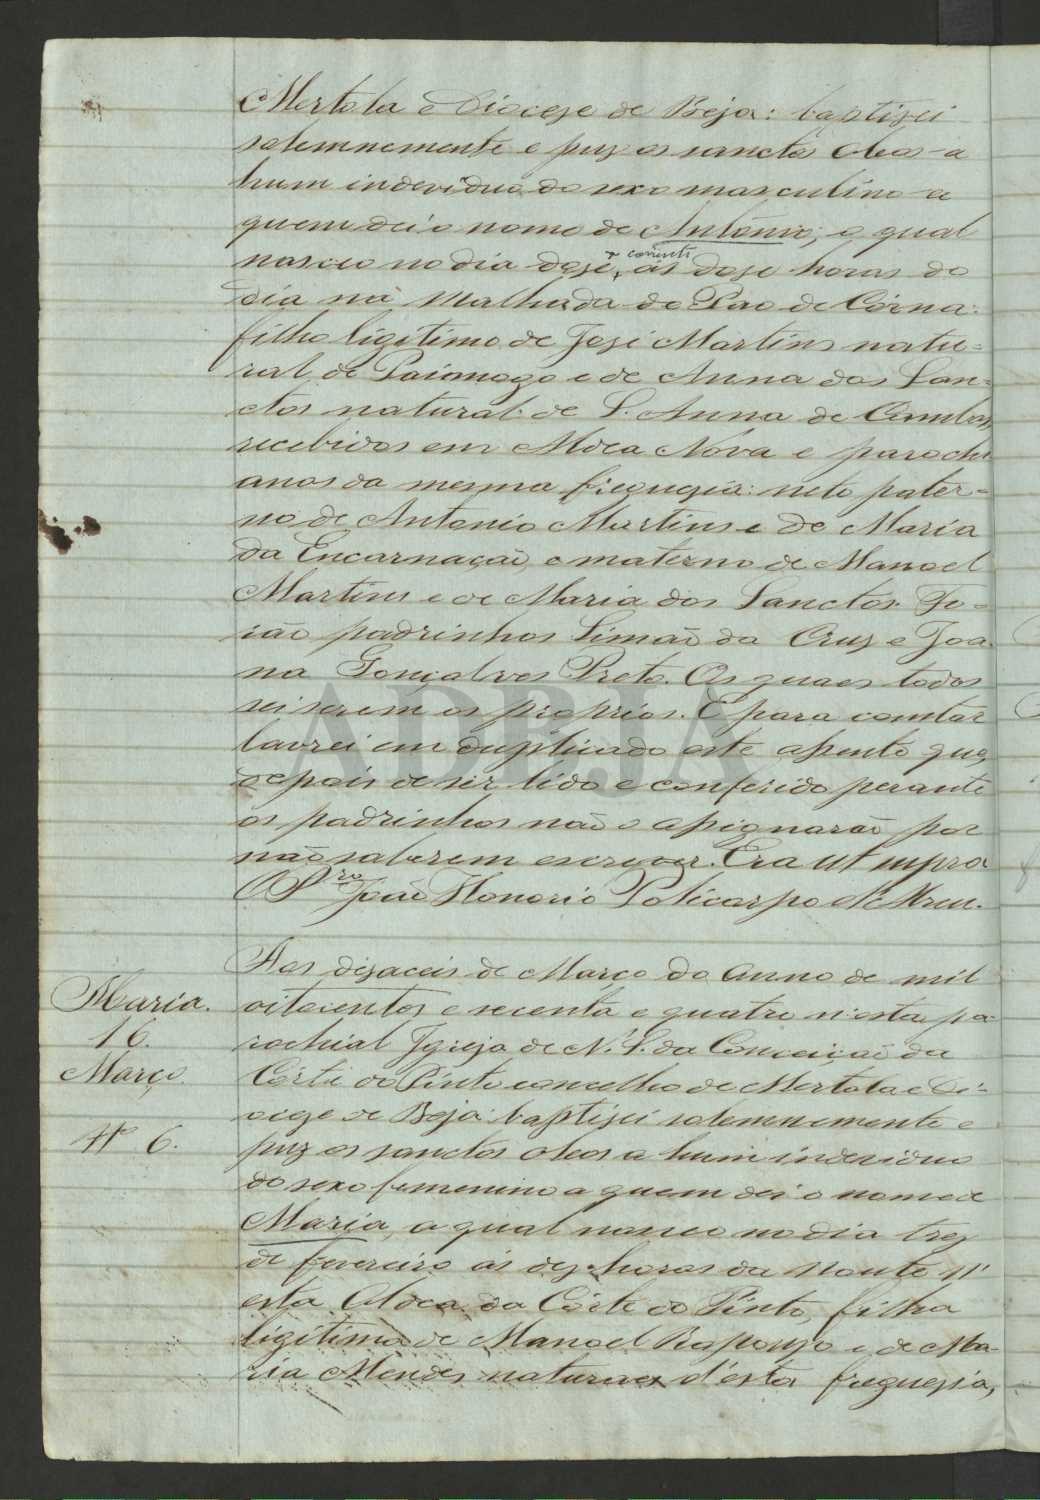 Mertola e Diocese de Beja: baptisei
solemnemente e puz os sanctos oleos a
hum individuo do sexo masculino a
quem dei o nome de Antonio; o qual
nasceo no dia dose do corrente, ás dose horas do
dia na Malhada do Páo de Córna:
filho ligitimo de José Martins natu-
ral de Paimogo e de Anna dos San-
ctos natural de S. Anna de Cambas
recebidos em Aldea Nova e parochi
anos da mesma freguezia: neto pater-
no de Antonio Martins e de Maria
da Encarnação, e materno de Manoel
Martins e de Maria dos Sanctos. Fo-
rão padrinhos Simão da Cruz e Joa
na Gonçalves Preto. Os quaes todos
sei serem os proprios. E para constar
lavrei em duplicado este assento que
depois de ser lido e conferido perante
os padrinhos não o assignarão por
não saberem escrever. Era ut supra
O P.ro João Honorio Policarpo d'Abreu.
Aos dezaceis de Março do Anno de mil
oitocentos e secenta e quatro n'esta pa-
rochial Igreja de N. S. da Conceição da
Côrte do Pinto concelho de Mertola e Di-
ocese de Beja: baptisei solemnemente e
puz os sanctos oleos a hum individuo
do sexo femenino a quem dei o nome de
Maria, a qual nasceo no dia trez
de fevereiro ás dez horas da noute n'
esta Aldea da Côrte do Pinto, filha
ligitima de Manoel Raposo e de Ma-
ria Mendes naturaes d'esta freguesia,
Maria.
16.
Março.
Nº 6.
ADBJA